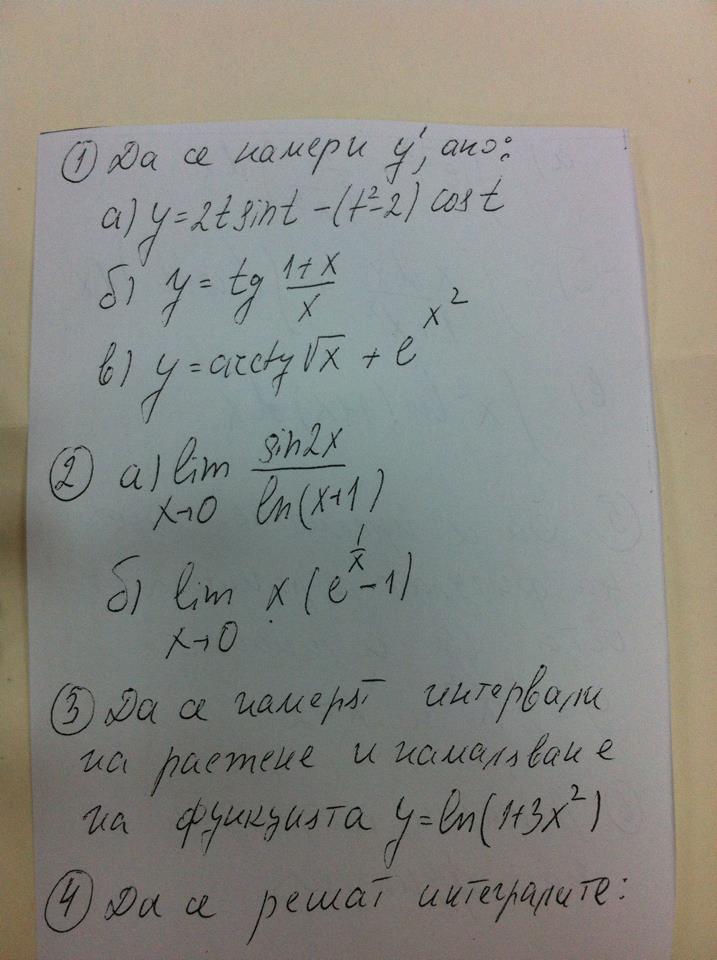 ① Да се намери y', ако:
а) y = 2t sint - (t²-2) cost
б) y = tg (1+x)/x
в) y = arctg √x + e^x²
② а) lim x→0 sin2x / ln(x+1)
б) lim x→0 x (e^(1/x) - 1)
③ Да се намерят интервали
на растене и намаляване
на функцията y = ln(1+3x²)
④ Да се решат интегралите: